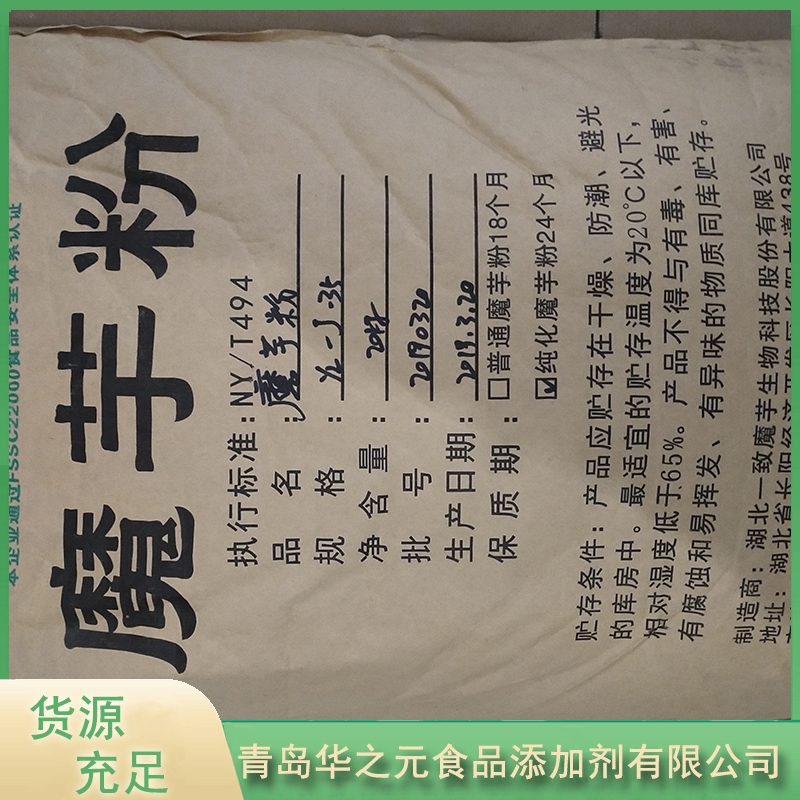 本企业通过FSSC22000食品安全体系认证
魔芋粉
执行标准:NY/T494
品名:魔芋粉
规格:YZ-J-35
净含量:20kg
批号:20190320
生产日期:2019.3.20
保质期:□普通魔芋粉18个月
☑纯化魔芋粉24个月
贮存条件:产品应贮存在干燥、防潮、避光
的库房中。最适宜的贮存温度为20℃以下,
相对湿度低于65%。产品不得与有毒、有害、
有腐蚀和易挥发、有异味的物质同库贮存。
制造商:湖北一致魔芋生物科技股份有限公司
地址:湖北省长阳经济开发区长阳大道438号
货源
充足
青岛华之元食品添加剂有限公司